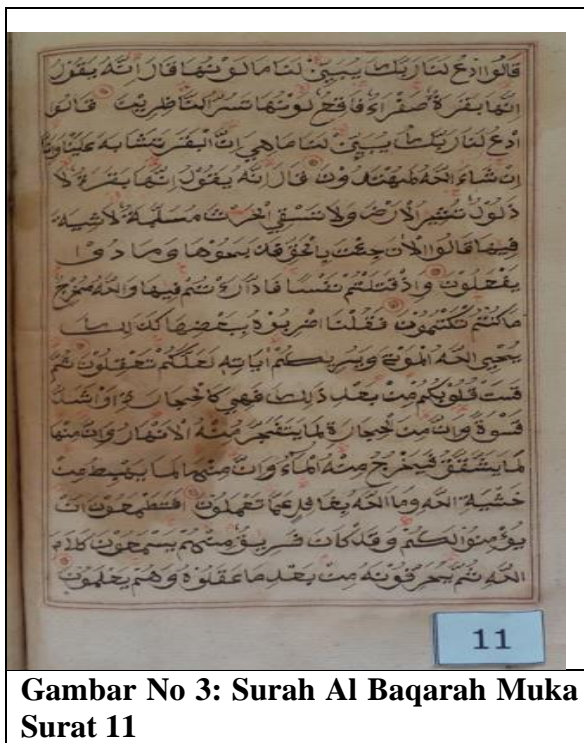 قالوا ادع لنا ربك يبين لنا ما لونها قال انه يقول
انها بقرة صفراء فاقع لونها تسر الناظرين قالوا
ادع لنا ربك يبين لنا ما هي ان البقر تشابه علينا وانا
ان شاء الله لمهتدون قال انه يقول انها بقرة لا
ذلول تثير الارض ولا تسقي الحرث مسلمة لاشية
فيها قالوا الان جئت بالحق فذبحوها وما كادوا
يفعلون واذ قتلتم نفسا فادارءتم فيها والله مخرج
ما كنتم تكتمون فقلنا اضربوه ببعضها كذلك
يحيي الله الموتى ويريكم اياته لعلكم تعقلون ثم
قست قلوبكم من بعد ذلك فهي كالحجارة او اشد
قسوة وان من الحجارة لما يتفجر منه الانهار وان منها
لما يشقق فيخرج منه الماء وان منها لما يهبط من
خشية الله وما الله بغافل عما تعملون افتطمعون ان
يؤمنوا لكم وقد كان فريق منهم يسمعون كلام
الله ثم يحرفونه من بعد ما عقلوه وهم يعلمون
11
Gambar No 3: Surah Al Baqarah Muka
Surat 11